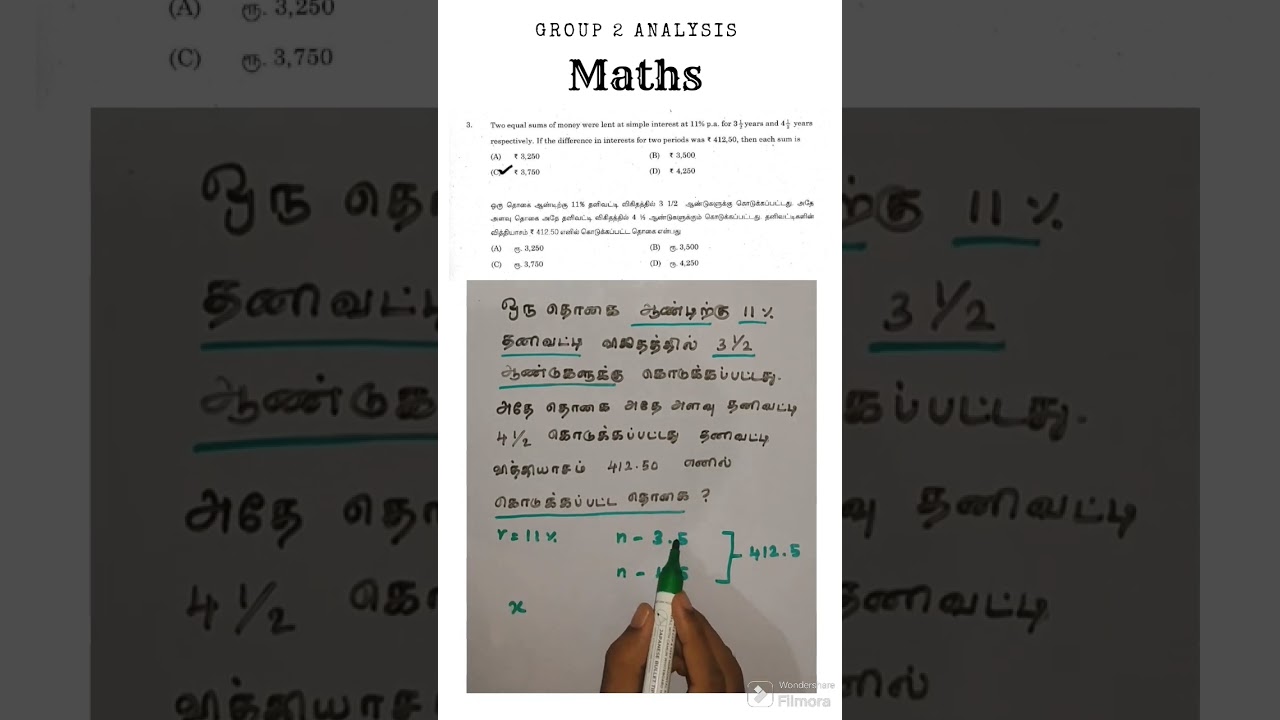 GROUP 2 ANALYSIS
Maths
3. Two equal sums of money were lent at simple interest at 11% p.a. for 3 ½ years and 4 ½ years
respectively. If the difference in interests for two periods was ₹ 412.50, then each sum is
(A) ₹ 3,250 (B) ₹ 3,500
(C) ✓ ₹ 3,750 (D) ₹ 4,250
ஒரு தொகை ஆண்டிற்கு 11% தனிவட்டி விகிதத்தில் 3 1/2 ஆண்டுகளுக்கு கொடுக்கப்பட்டது. அதே
அளவு தொகை அதே தனிவட்டி விகிதத்தில் 4 ½ ஆண்டுகளுக்கும் கொடுக்கப்பட்டது. தனிவட்டிகளின்
வித்தியாசம் ₹ 412.50 எனில் கொடுக்கப்பட்ட தொகை என்பது
(A) ரூ. 3,250 (B) ரூ. 3,500
(C) ரூ. 3,750 (D) ரூ. 4,250
ஒரு தொகை ஆண்டிற்கு 11 %
தனிவட்டி விகிதத்தில் 3 1/2
ஆண்டுகளுக்கு கொடுக்கப்பட்டது.
அதே தொகை அதே அளவு தனிவட்டி
4 1/2 கொடுக்கப்பட்டது தனிவட்டி
வித்தியாசம் 412.50 எனில்
கொடுக்கப்பட்ட தொகை ?
r = 11 % n - 3.5
412.5
n -
x
Wondershare
Filmora
(A) ரூ. 3,250
(C) ரூ. 3,750